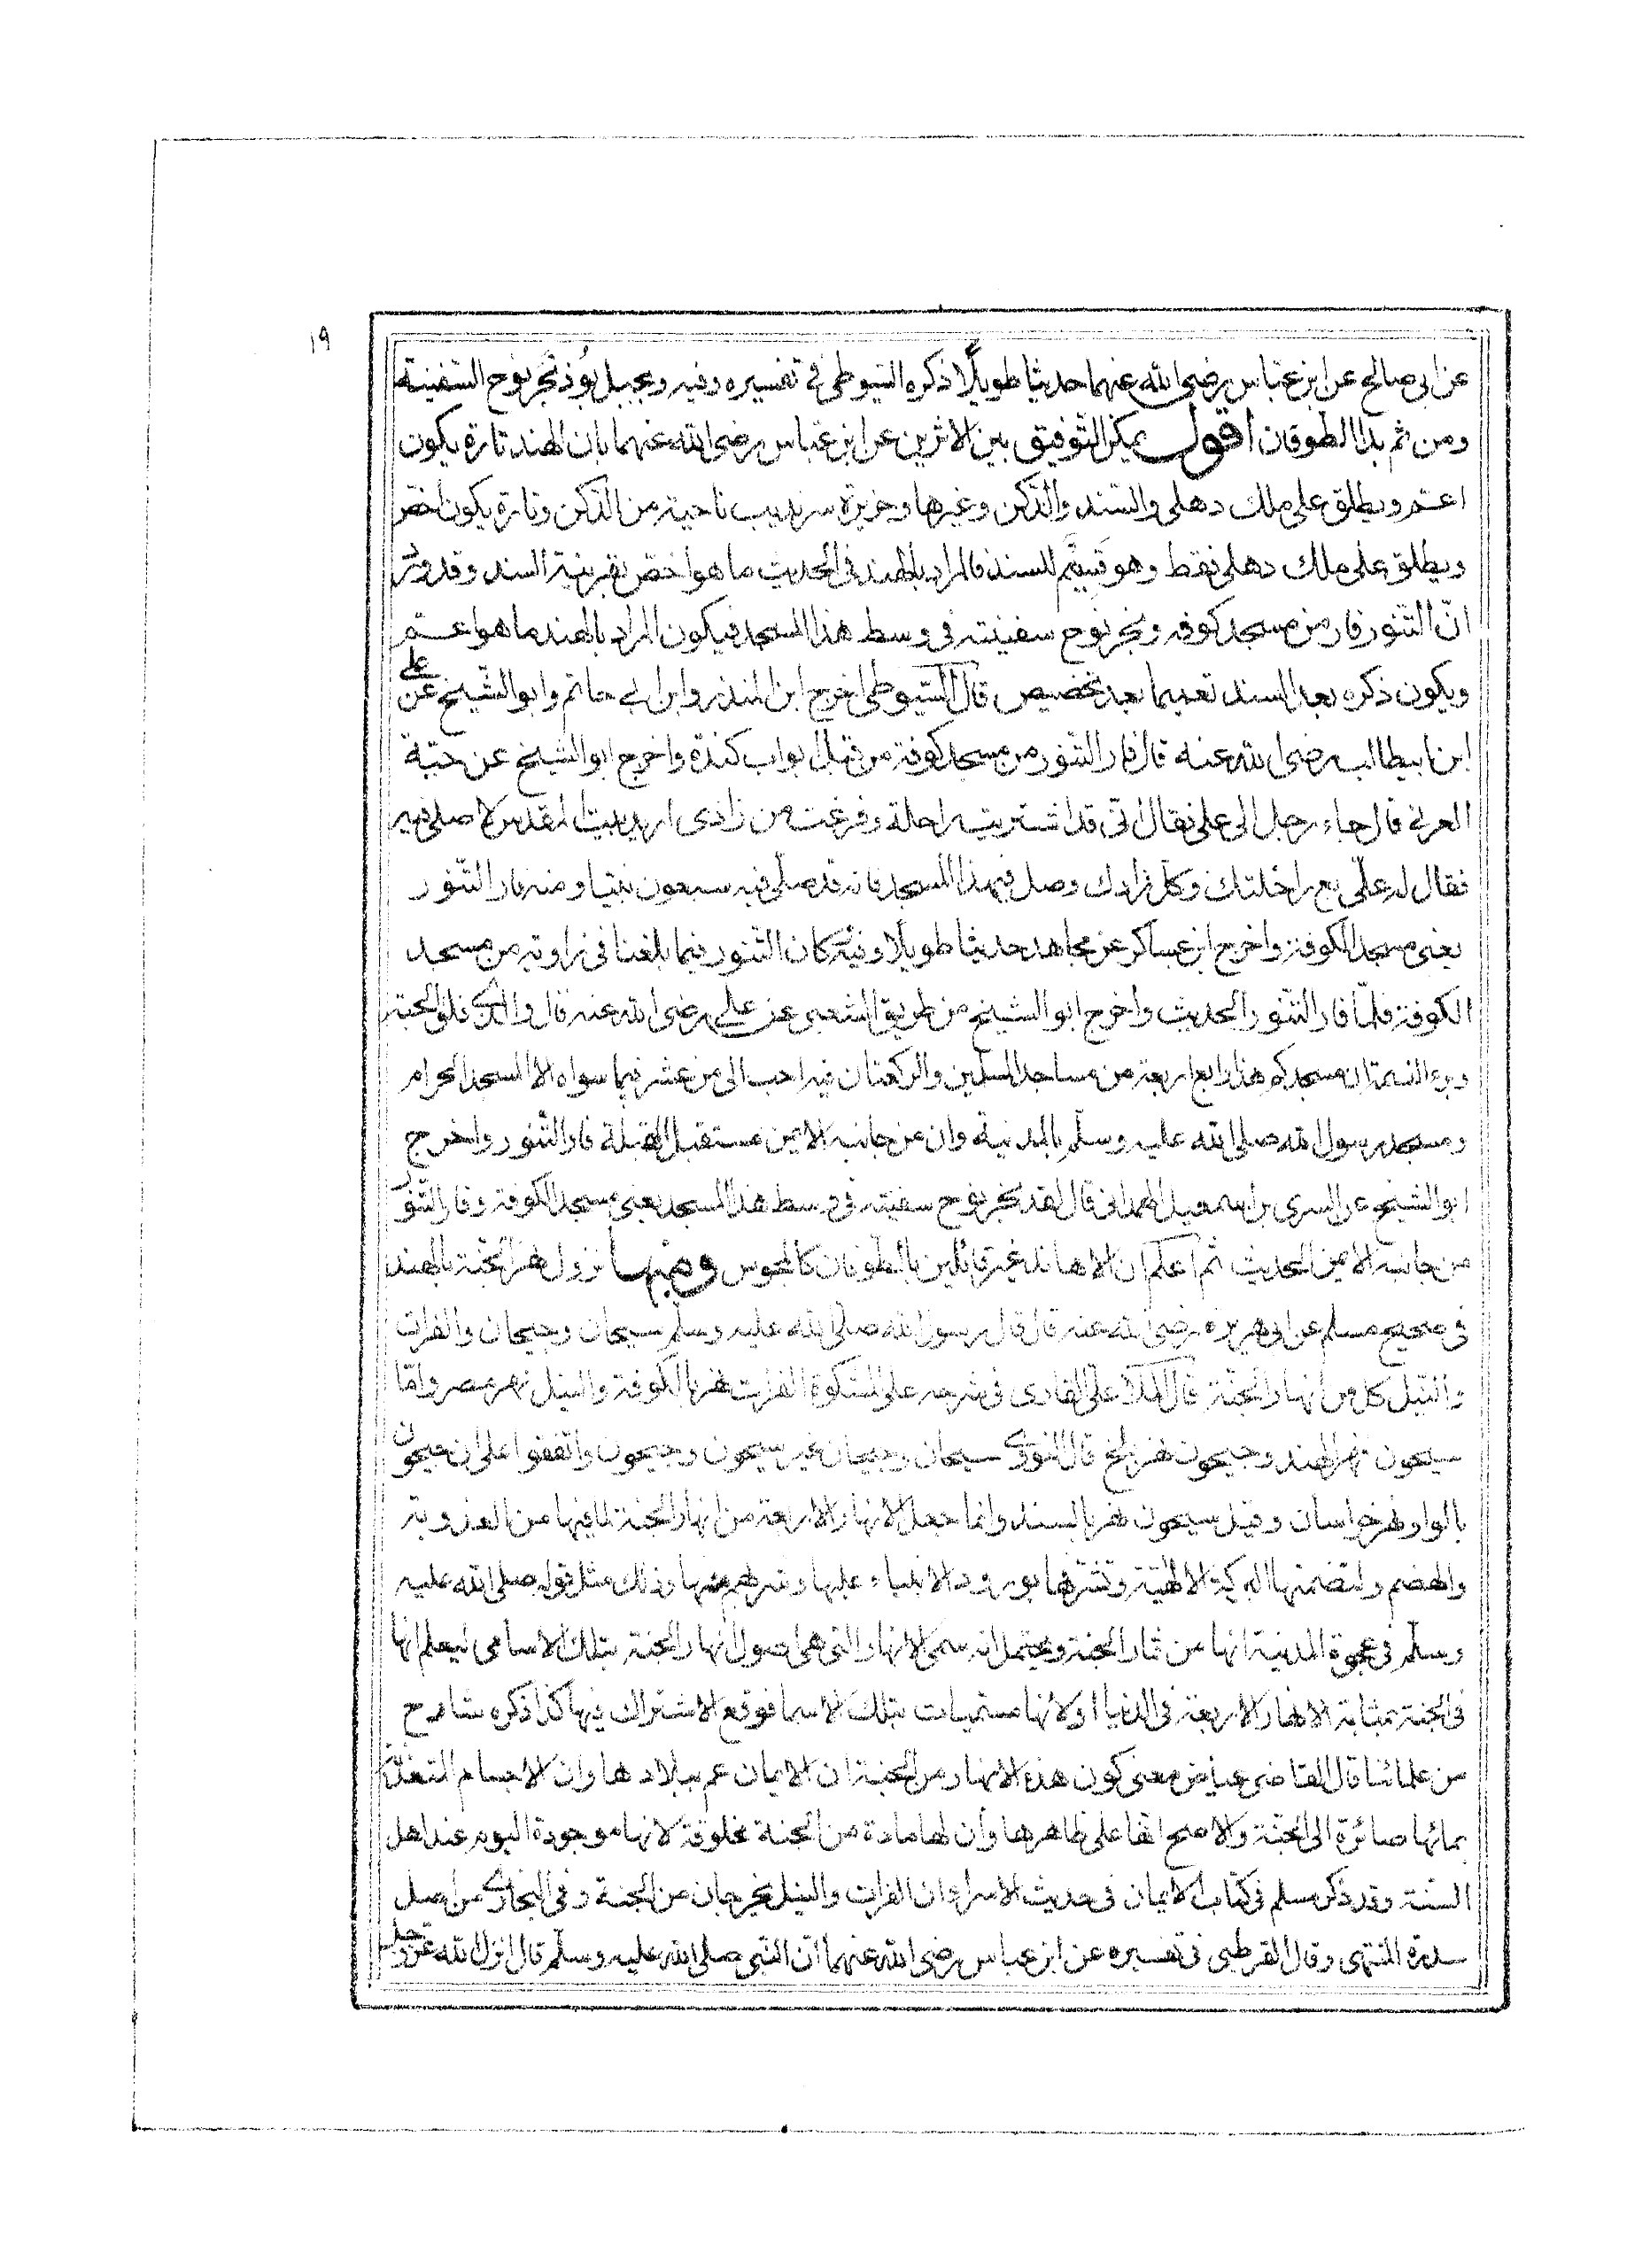 ١٩
عن ابى صالح عن ابن عباس رضى الله عنهما حديثا طويلًا ذكره السّيوطى فى تفسيره وفيه وبجبل بُوذ نجر نوح السّفينة
ومن ثم بدا الطوفان اقول يمكن التّوفيق بين الاثرين عن ابن عباس رضى الله عنهما بان الهند تارة يكون
اعم ويطلق على ملك دهلى والسّند والدّكن وغيرها وجزيرة سرنديب ناحية من الدّكن وتارة يكون اخص
ويطلق على ملك دهلى فقط وهو قسيم للسند فالمراد بالهند فى الحديث ما هو اخص بقرينة السند وقد ورد
انّ التّنور فار من مسجد كوفه ونجر نوح سفينته فى وسط هذا المسجد فيكون المراد بالهند ما هو اعم
ويكون ذكره بعد السند تعميما بعد تخصيص قال السّيوطى اخرج ابن المنذر وابن ابى حاتم وابو الشّيخ عن على
ابن ابيطالب رضى الله عنه قال فار التّنور من مسجد كوفة من قبل ابواب كندة واخرج ابو الشيخ عن حبّة
العرنى قال جاء رجل الى على فقال انّى قد اشتريت راحلة وفرغت من زادى اريد بيت المقدس لاصلى فيه
فقال له علّى بع راحلتك وكل زادك وصل فى هذا المسجد فانه قد صلّى فيه سبعون نبيا ومنه فار التّنور
يعنى مسجد الكوفة واخرج ابن عساكر عن مجاهد حديثا طويلا وفيه كان التّنور فيما بلغنا فى زاوية من مسجد
الكوفة فلمّا فار التّنور الحديث واخرج ابو الشيخ من طريق الشعبى عن على رضى الله عنه قال والذى فلق الحبة
وبرء النسمة ان مسجدكم هذا رابع اربعة من مساجد المسلمين والركعتان فيه احب الى من عشر فيما سواه الا المسجد الحرام
ومسجد رسول الله صلى الله عليه وسلّم بالمدينة وان من جانبه الايمن مستقبل القبلة فار التّنور واخرج
ابو الشيخ عن السرى بن اسمعيل الهمدانى قال لقد نجر نوح سفينته فى وسط هذا المسجد يعنى مسجد الكوفة وفار التّنور
من جانبه الايمن الحديث ثم اعلم ان الاهاند غير قائلين بالطّوفان كالمجوس ومنها نزول نهر الجنّة بالهند
فى صحيح مسلم عن ابى هريرة رضى الله عنه قال قال رسول الله صلى الله عليه وسلم سيحان وجيحان والفرات
والنّيل كل من انهار الجنّة قال الملا على القارى فى شرحه على المشكوة الفرات نهر بالكوفة والنيل نهر مصر وامّا
سيحون نهر الهند وجيحون نهر بلخ قال النووى سيحان وجيحان غير سيحون وجيحون واتفقوا على ان جيحون
بالواو نهر خراسان وقيل سيحون نهر بالسند وانما جعل الانهار الاربعة من انهار الجنة لما فيها من العذوبة
والهضم ولتضمنها البركة الالهيّة وتشرفها بورود الانبياء عليها وشربهم منها وذلك مثل قوله صلى الله عليه
وسلّم فى عجوة المدينة انها من ثمار الجنة ويحتمل انه سمى الانهار التى هى اصول انهار الجنة بتلك الاسامى ليعلم انها
فى الجنة بمثابة الانهار الاربعة فى الدنيا او لانها مسميات بتلك الاسما فوقع الاشتراك فيها كذا ذكره شارح
من علمائنا قال القاضى عياض معنى كون هذه الانهار من الجنة ان الايمان عم ببلادها وان الاجسام المتغذّية
بمائها صائرة الى الجنّة والاصح انّها على ظاهرها وأن لها مادة من الجنة مخلوقة لانها موجودة اليوم عند اهل
السّنة وقد ذكر مسلم فى كتاب الايمان فى حديث الاسراء ان الفرات والنيل يخرجان من الجنة وفى البخارى من اصل
سدرة المنتهى وقال القرطبى فى تفسيره عن ابن عباس رضى الله عنهما انّ النبى صلى الله عليه وسلّم قال انزل الله عز وجل